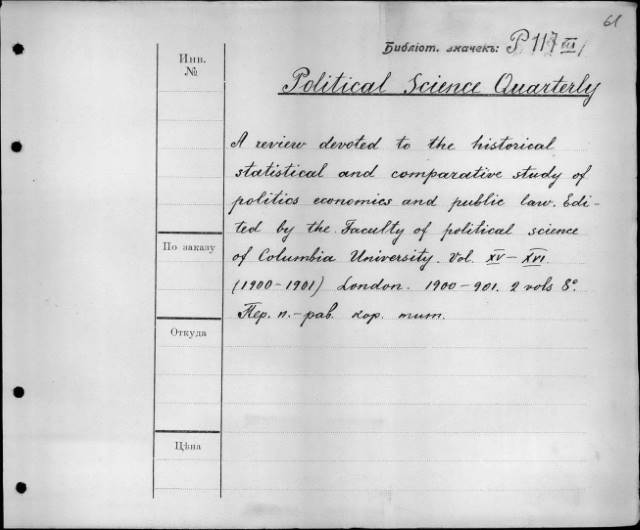 61
Библіот. значекъ: P 117 III/1
Инв.
№
Political Science Quarterly
A review devoted to the historical
statistical and comparative study of
politics economics and public law. Edi-
ted by the Faculty of political science
of Columbia University. Vol. XV-XVI.
(1900-1901) London. 1900-901. 2 vols 8°.
Пер. п.-рав. кор. тит.
По заказу
Откуда
Цѣна